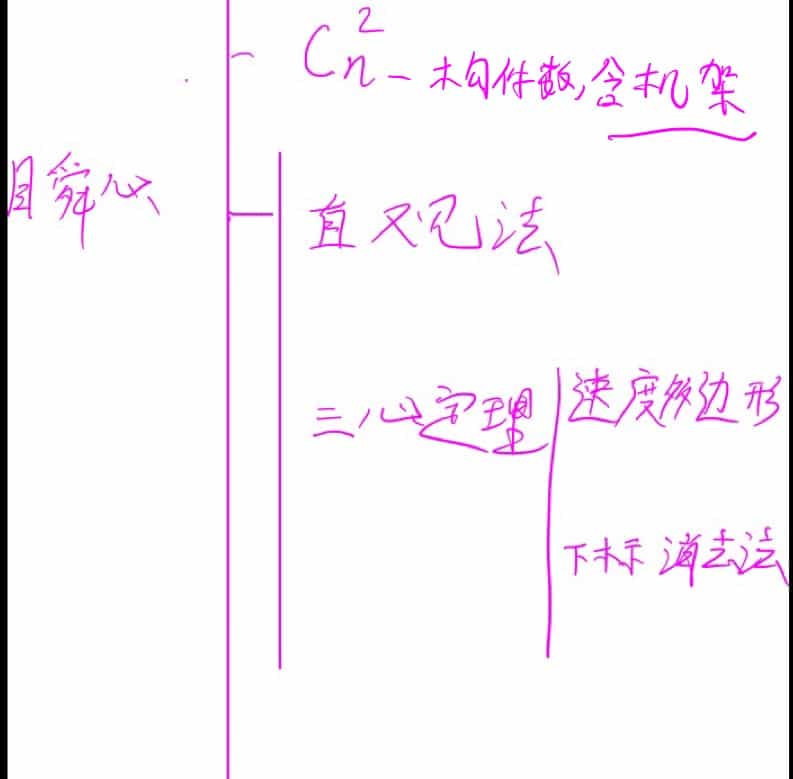 C_n^2 — 构件数,含机架
瞬心
直观法
三心定理
速度多边形
下标消去法